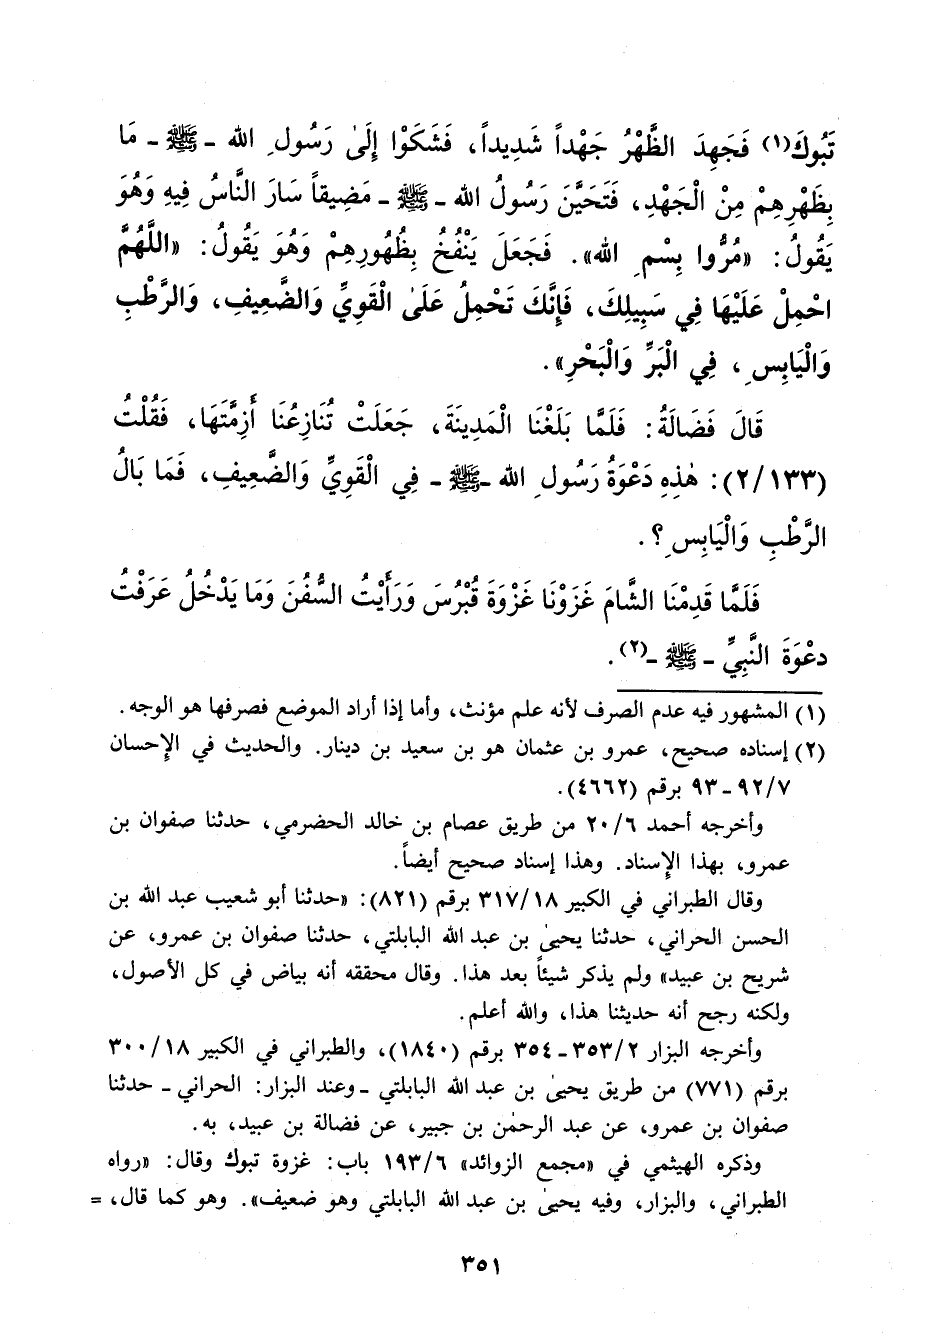 تَبُوكَ(١) فَجَهِدَ الظَّهْرُ جَهْداً شَدِيداً، فَشَكَوْا إِلَىٰ رَسُولِ الله ـ ﷺ ـ مَا
بِظَهْرِهِمْ مِنَ الْجَهْدِ، فَتَحَيَّنَ رَسُولُ الله ـ ﷺ ـ مَضِيقاً سَارَ النَّاسُ فِيهِ وَهُوَ
يَقُولُ: «مُرُّوا بِسْمِ الله». فَجَعَلَ يَنْفُخُ بِظُهُورِهِمْ وَهُوَ يَقُولُ: «اللَّهُمَّ
احْمِلْ عَلَيْهَا فِي سَبِيلِكَ، فَإِنَّكَ تَحْمِلُ عَلَىٰ الْقَوِيِّ وَالضَّعِيفِ، وَالرَّطْبِ
وَالْيَابِسِ، فِي الْبَرِّ وَالْبَحْرِ».
قَالَ فَضَالَةُ: فَلَمَّا بَلَغْنَا الْمَدِينَةَ، جَعَلَتْ تُنَازِعُنَا أَزِمَّتَهَا، فَقُلْتُ
(٢/١٣٣): هٰذِهِ دَعْوَةُ رَسُولِ الله ـ ﷺ ـ فِي الْقَوِيِّ وَالضَّعِيفِ، فَمَا بَالُ
الرَّطْبِ وَالْيَابِسِ؟.
فَلَمَّا قَدِمْنَا الشَّامَ غَزَوْنَا غَزْوَةَ قُبْرُسَ وَرَأَيْتُ السُّفُنَ وَمَا يَدْخُلُ عَرَفْتُ
دعْوَةَ النَّبِيِّ ـ ﷺ ـ(٢).
(١) المشهور فيه عدم الصرف لأنه علم مؤنث، وأما إذا أراد الموضع فصرفها هو الوجه.
(٢) إسناده صحيح، عمرو بن عثمان هو بن سعيد بن دينار. والحديث في الإحسان
٩٢/٧ ـ ٩٣ برقم (٤٦٦٢).
وأخرجه أحمد ٢٠/٦ من طريق عصام بن خالد الحضرمي، حدثنا صفوان بن
عمرو، بهذا الإسناد. وهذا إسناد صحيح أيضاً.
وقال الطبراني في الكبير ٣١٧/١٨ برقم (٨٢١): «حدثنا أبو شعيب عبد الله بن
الحسن الحراني، حدثنا يحيىٰ بن عبد الله البابلتي، حدثنا صفوان بن عمرو، عن
شريح بن عبيد» ولم يذكر شيئاً بعد هذا. وقال محققه أنه بياض في كل الأصول،
ولكنه رجح أنه حديثنا هذا، والله أعلم.
وأخرجه البزار ٣٥٣/٢ ـ ٣٥٤ برقم (١٨٤٠)، والطبراني في الكبير ٣٠٠/١٨
برقم (٧٧١) من طريق يحيىٰ بن عبد الله البابلتي ـ وعند البزار: الحراني ـ حدثنا
صفوان بن عمرو، عن عبد الرحمٰن بن جبير، عن فضالة بن عبيد، به.
وذكره الهيثمي في «مجمع الزوائد» ١٩٣/٦ باب: غزوة تبوك وقال: «رواه
الطبراني، والبزار، وفيه يحيىٰ بن عبد الله البابلتي وهو ضعيف». وهو كما قال، =
٣٥١